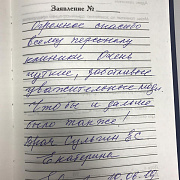 Заявление №
Огромное спасибо
всему персоналу
клиники Очень
чуткие, заботливые
уважительные люди.
Чтобы и дальше
было также!
Врач Сулыгин ВС
Екатерина
10.06.19